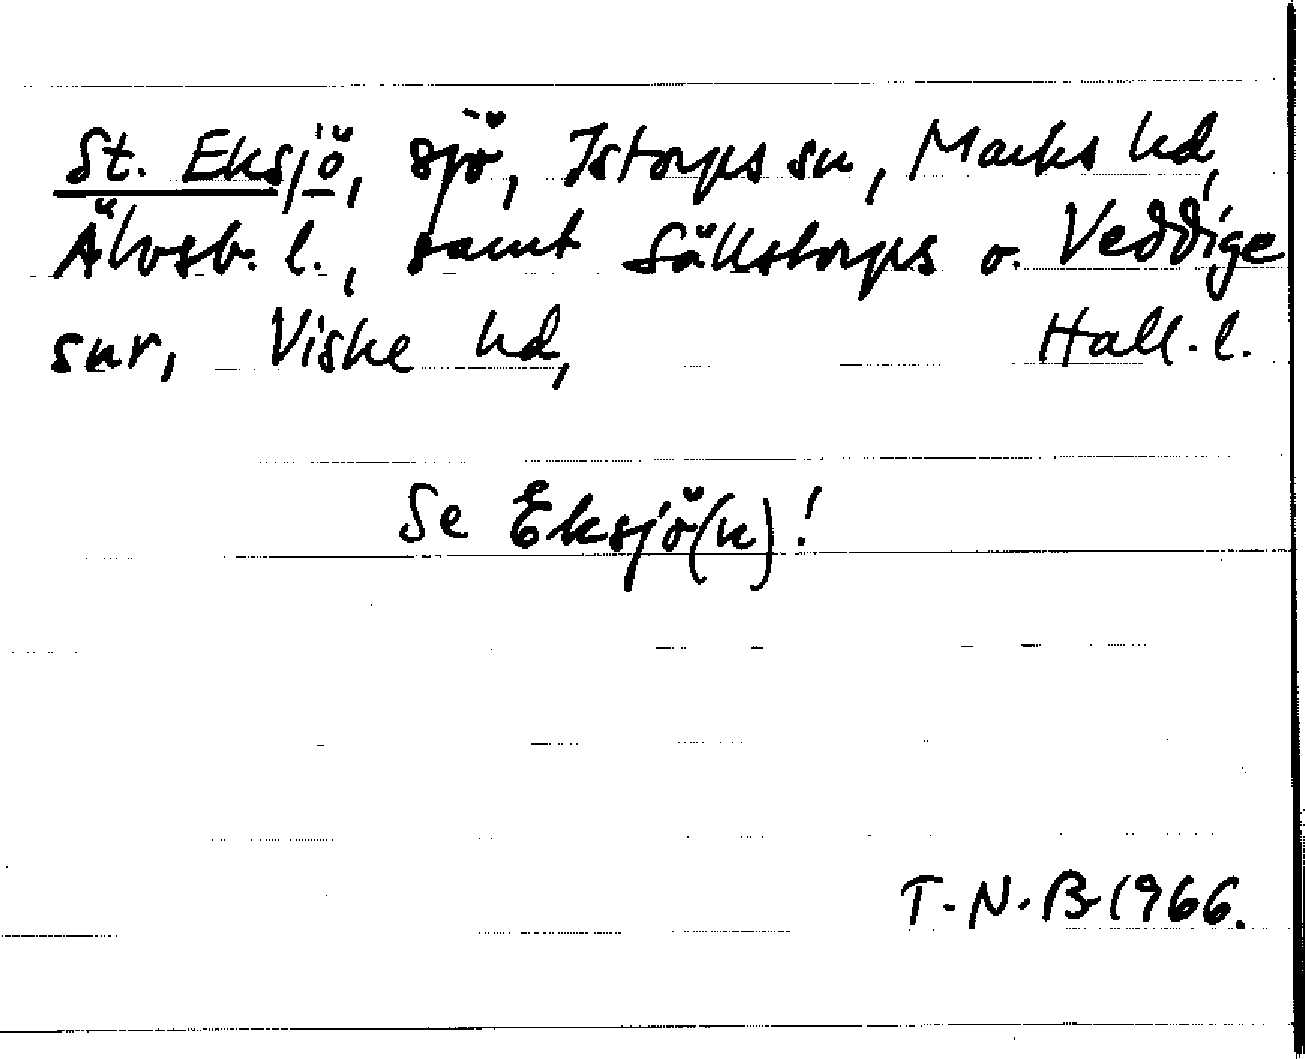 St. Eksjö, sjö, Istorps sn, Marks hd,
Älvsb. l., samt Sällstorps o. Veddige
snr, Viske hd, Hall. l.
Se Eksjö(n)!
T.N.B 1966.